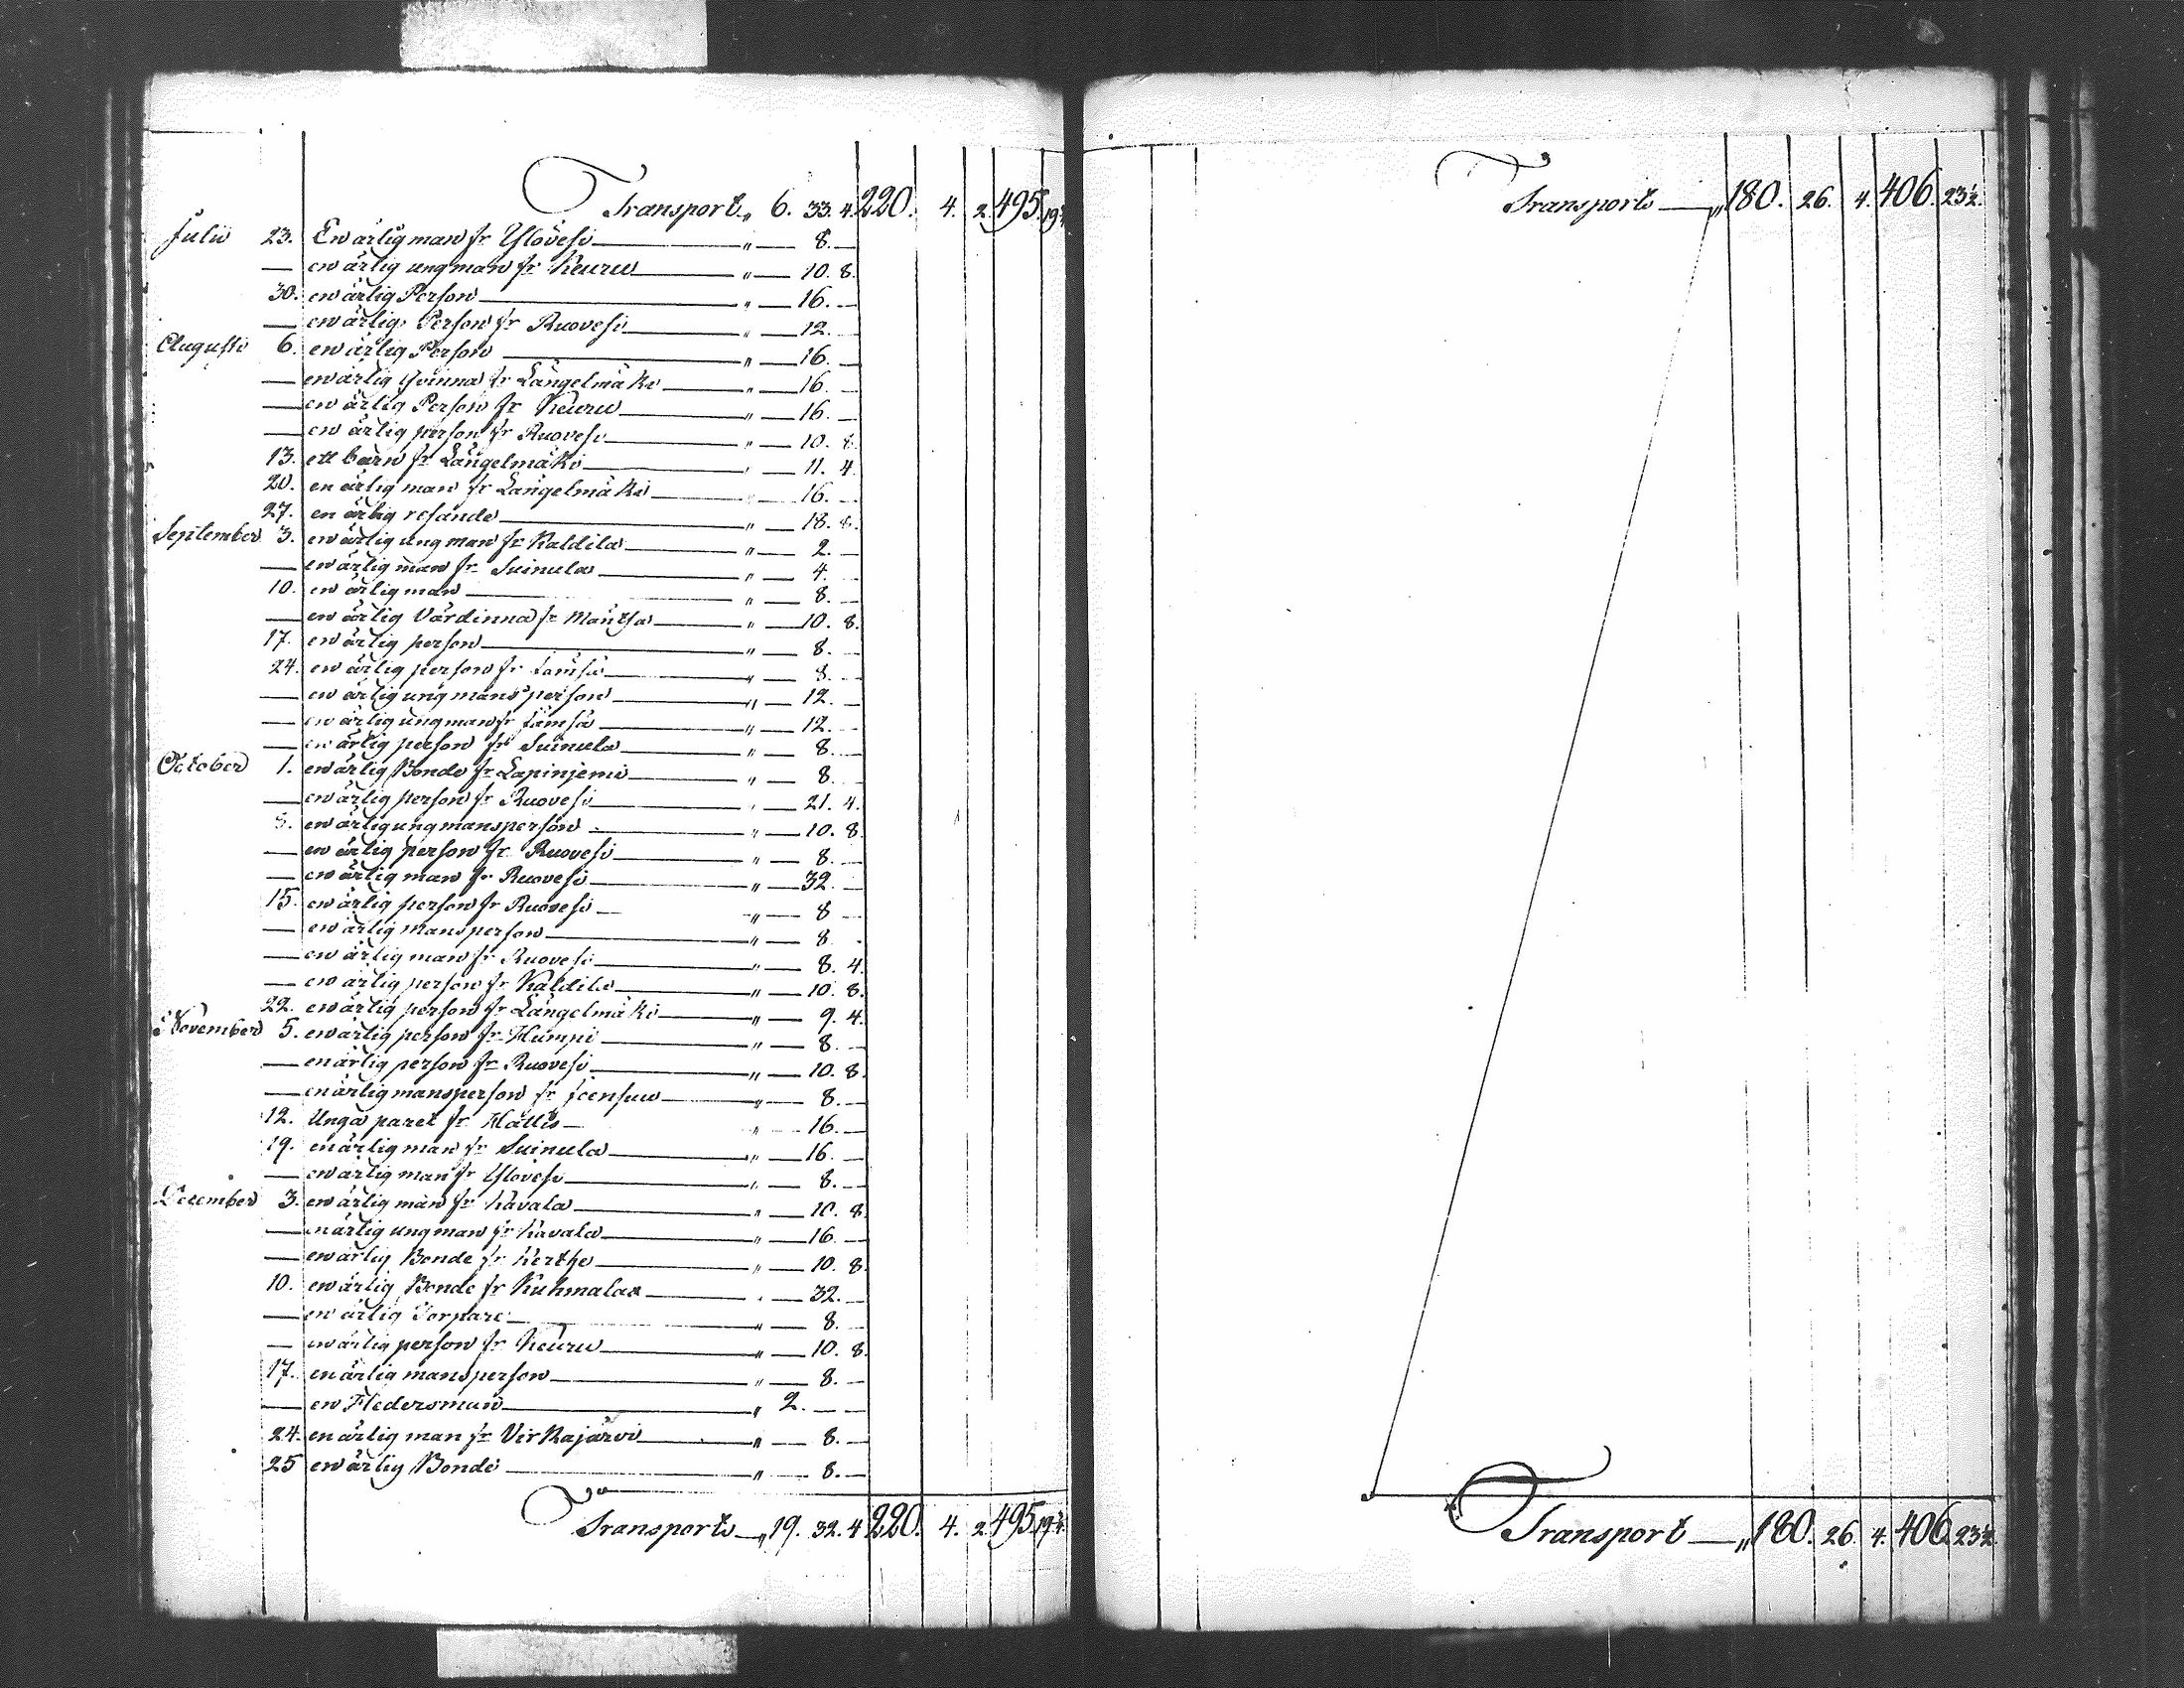 Transport „ 6. 33. 4. 220. 4. 2. 495. 19½
Julii 23. En ärlig man fr Ylövesi „ — 8. —
— en ärlig ung man fr Keuru „ — 10. 8.
30. en ärlig Person „ — 16. —
— en ärlig Person fr Ruovesi „ — 12. —
Augusti 6. en ärlig Person „ — 16. —
— en ärlig qvinna fr Längelmäki „ — 16. —
— en ärlig Person fr Keuru „ — 16. —
— en ärlig person fr Ruovesi „ — 10. 8.
13. ett barn fr Längelmäki „ — 11. 4.
20. en ärlig man fr Längelmäki „ — 16. —
27. en ärlig resande „ — 18. 8.
September 3. en ärlig ung man fr Kaldila „ — 2. —
— en ärlig man fr Suinula „ — 4. —
10. en ärlig man „ — 8. —
— en ärlig Värdinna fr Mäntha „ — 10. 8.
17. en ärlig person „ — 8. —
24. en ärlig person fr Jämsä „ — 8. —
— en ärlig ung mans person „ — 12. —
— en ärlig ung man fr Jämsä „ — 12. —
— en ärlig person fr Suinula „ — 8. —
October 1. en ärlig Bonde fr Lapinjemi „ — 8. —
— en ärlig person fr Ruovesi „ — 21. 4.
8. en ärlig ung mansperson „ — 10. 8.
— en ärlig person fr Ruovesi „ — 8. —
— en ärlig man fr Ruovesi „ — 32. —
15. en ärlig person fr Ruovesi „ — 8 —
— en ärlig mansperson „ — 8.
— en ärlig man fr Ruovesi „ — 8. 4.
— en ärlig person fr Kaldila „ — 10. 8.
22. en ärlig person fr Längelmäki „ — 9. 4.
November 5. en ärlig person fr Humpi „ — 8. —
— en ärlig person fr Ruovesi „ — 10. 8.
— en ärlig mansperson fr Joensuu „ — 8. —
12. Unga paret fr Mattis „ — 16. —
19. en ärlig man fr Suinula „ — 16. —
— en ärlig man fr Ylövesi „ — 8. —
December 3. en ärlig man fr Kavala „ — 10. 8.
— en ärlig ung man fr Kavala „ — 16. —
— en ärlig Bonde fr Kerthe „ — 10. 8.
10. en ärlig Bonde fr Kuhmalax „ — 32. —
— en ärlig Torpare „ — 8. —
— en ärlig person fr Keuru „ — 10. 8.
17. en ärlig mansperson „ — 8. —
— en Hedersman „ 2. — —
24. en ärlig man fr Virkajärvi „ — 8. —
25 en ärlig Bonde „ — 8. —
Transport „ 19. 32. 4 220. 4. 2. 495. 19½
Transport „ 180. 26. 4. 406. 23½.
Transport „ 180. 26. 4. 406. 23½.